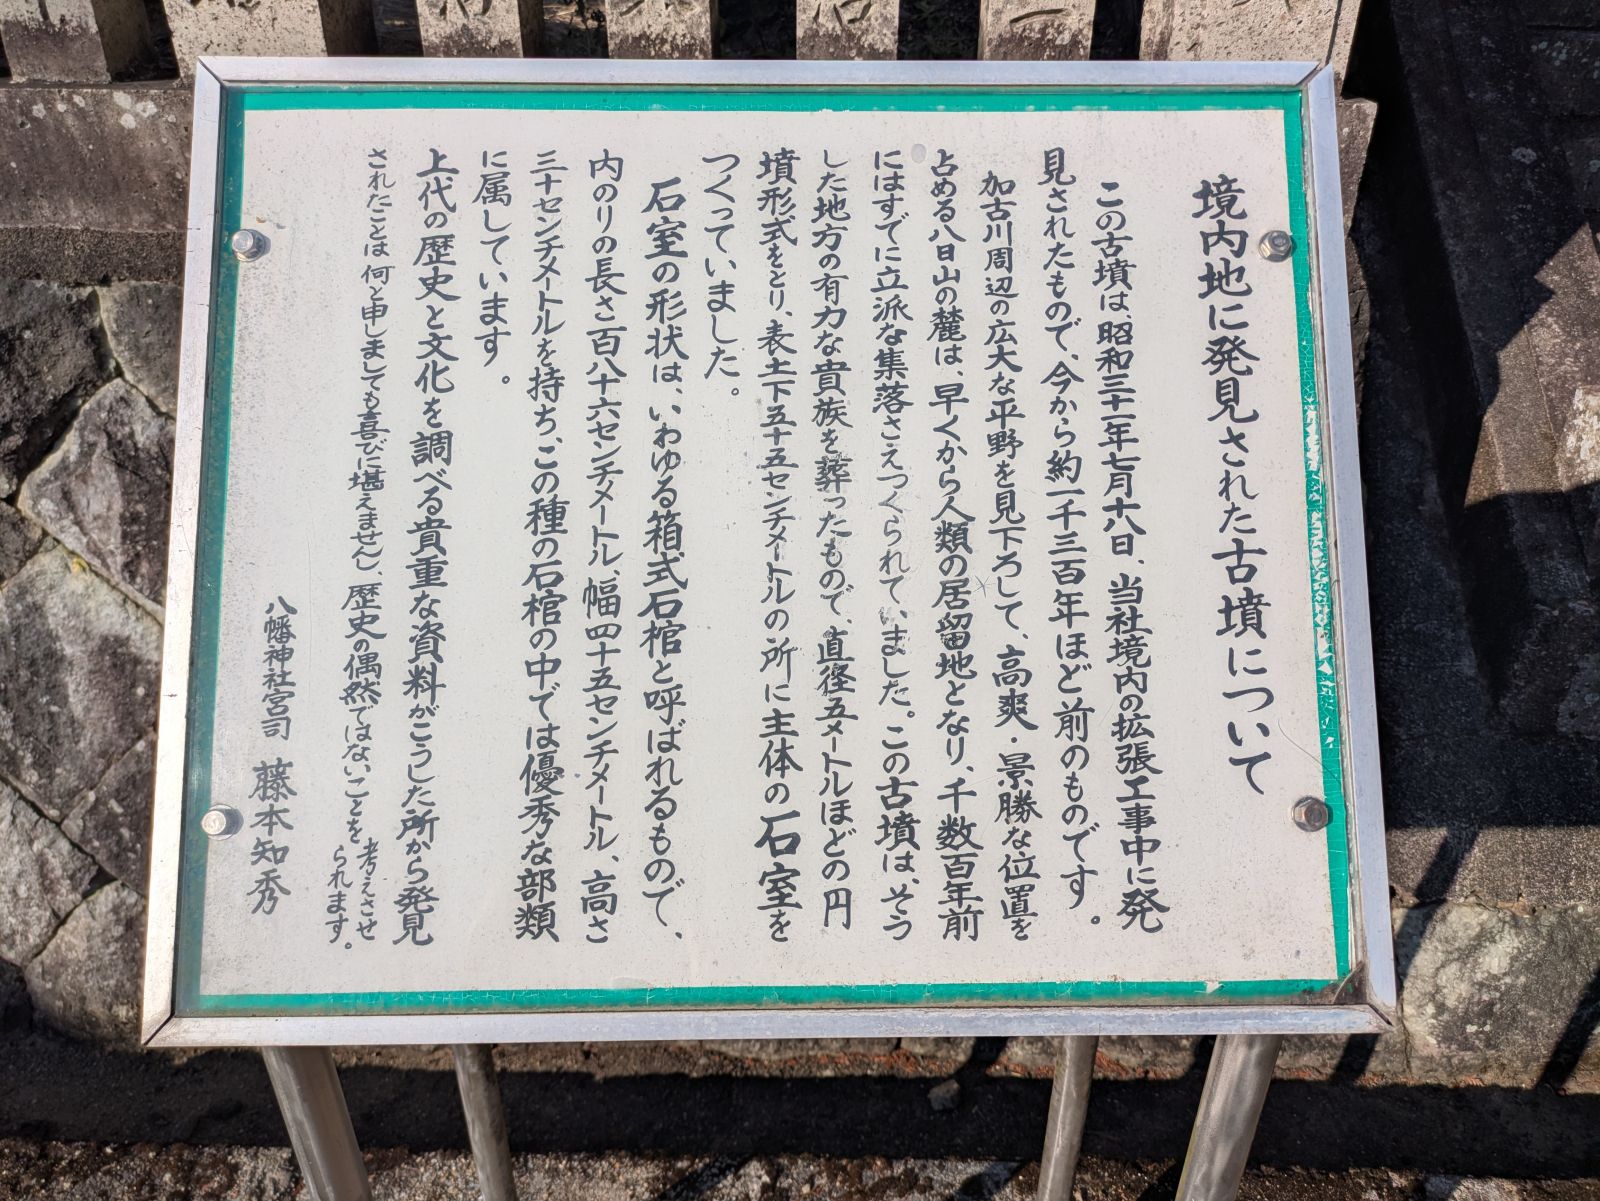 境内地に発見された古墳について
この古墳は、昭和三十一年七月十八日、当社境内の拡張工事中に発
見されたもので、今から約一千三百年ほど前のものです。
加古川周辺の広大な平野を見下ろして、高爽・景勝な位置を
占める八日山の麓は、早くから人類の居留地となり、千数百年前
にはすでに立派な集落さえつくられていました。この古墳は、そう
した地方の有力な貴族を葬ったもので、直径五メートルほどの円
墳形式をとり、表土下五十五センチメートルの所に主体の石室を
つくっていました。
石室の形状は、いわゆる箱式石棺と呼ばれるもので、
内のりの長さ百八十六センチメートル、幅四十五センチメートル、高さ
三十センチメートルを持ち、この種の石棺の中では優秀な部類
に属しています。
上代の歴史と文化を調べる貴重な資料がこうした所から発見
されたことは何と申しましても喜びに堪えませんし、歴史の偶然ではないことを考えさせ
られます。
八幡神社宮司 藤本知秀